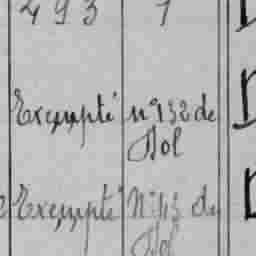 493 1
Exempté n° 132 de
Dol
Exempté N° 113 de
Dol